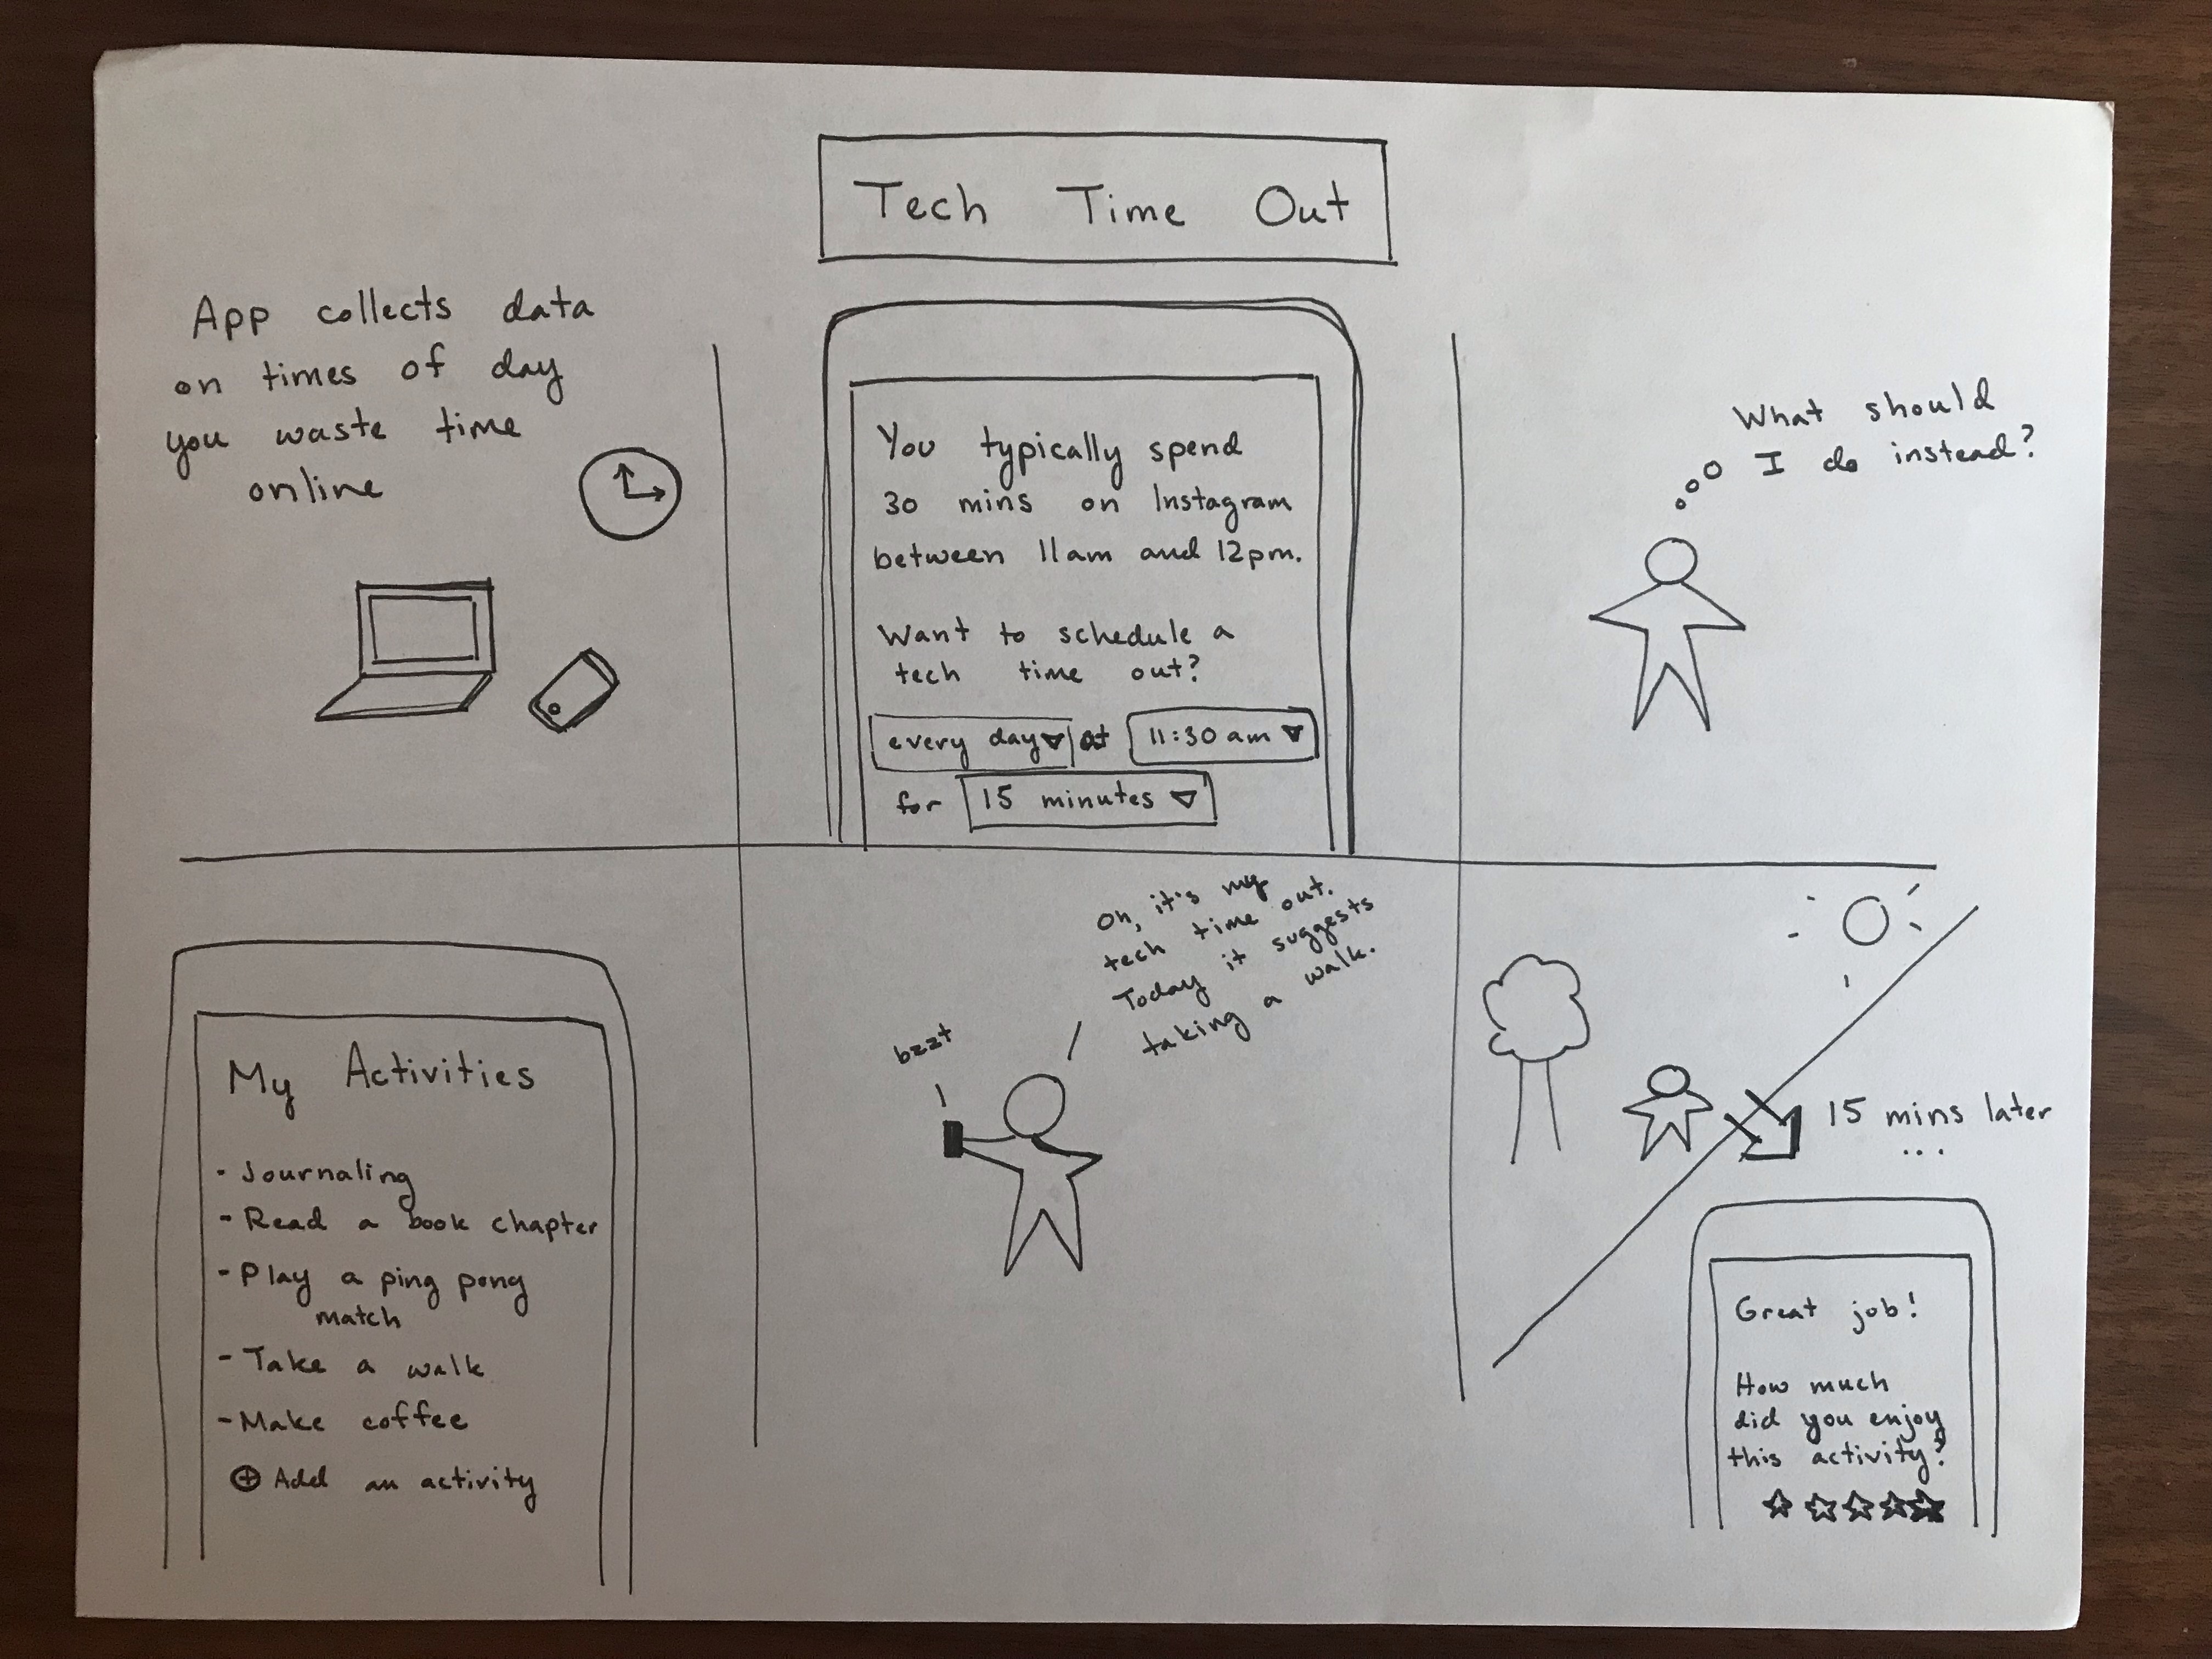 Tech Time Out
App collects data
on times of day
you waste time
online
You typically spend
30 mins on Instagram
between 11am and 12pm.
Want to schedule a
tech time out?
every day at 11:30 am
for 15 minutes
What should
I do instead?
My Activities
- Journaling
- Read a book chapter
- Play a ping pong
match
- Take a walk
- Make coffee
⊕ Add an activity
bzzt
Oh, it's my
tech time out.
Today it suggests
taking a walk.
15 mins later
...
Great job!
How much
did you enjoy
this activity?